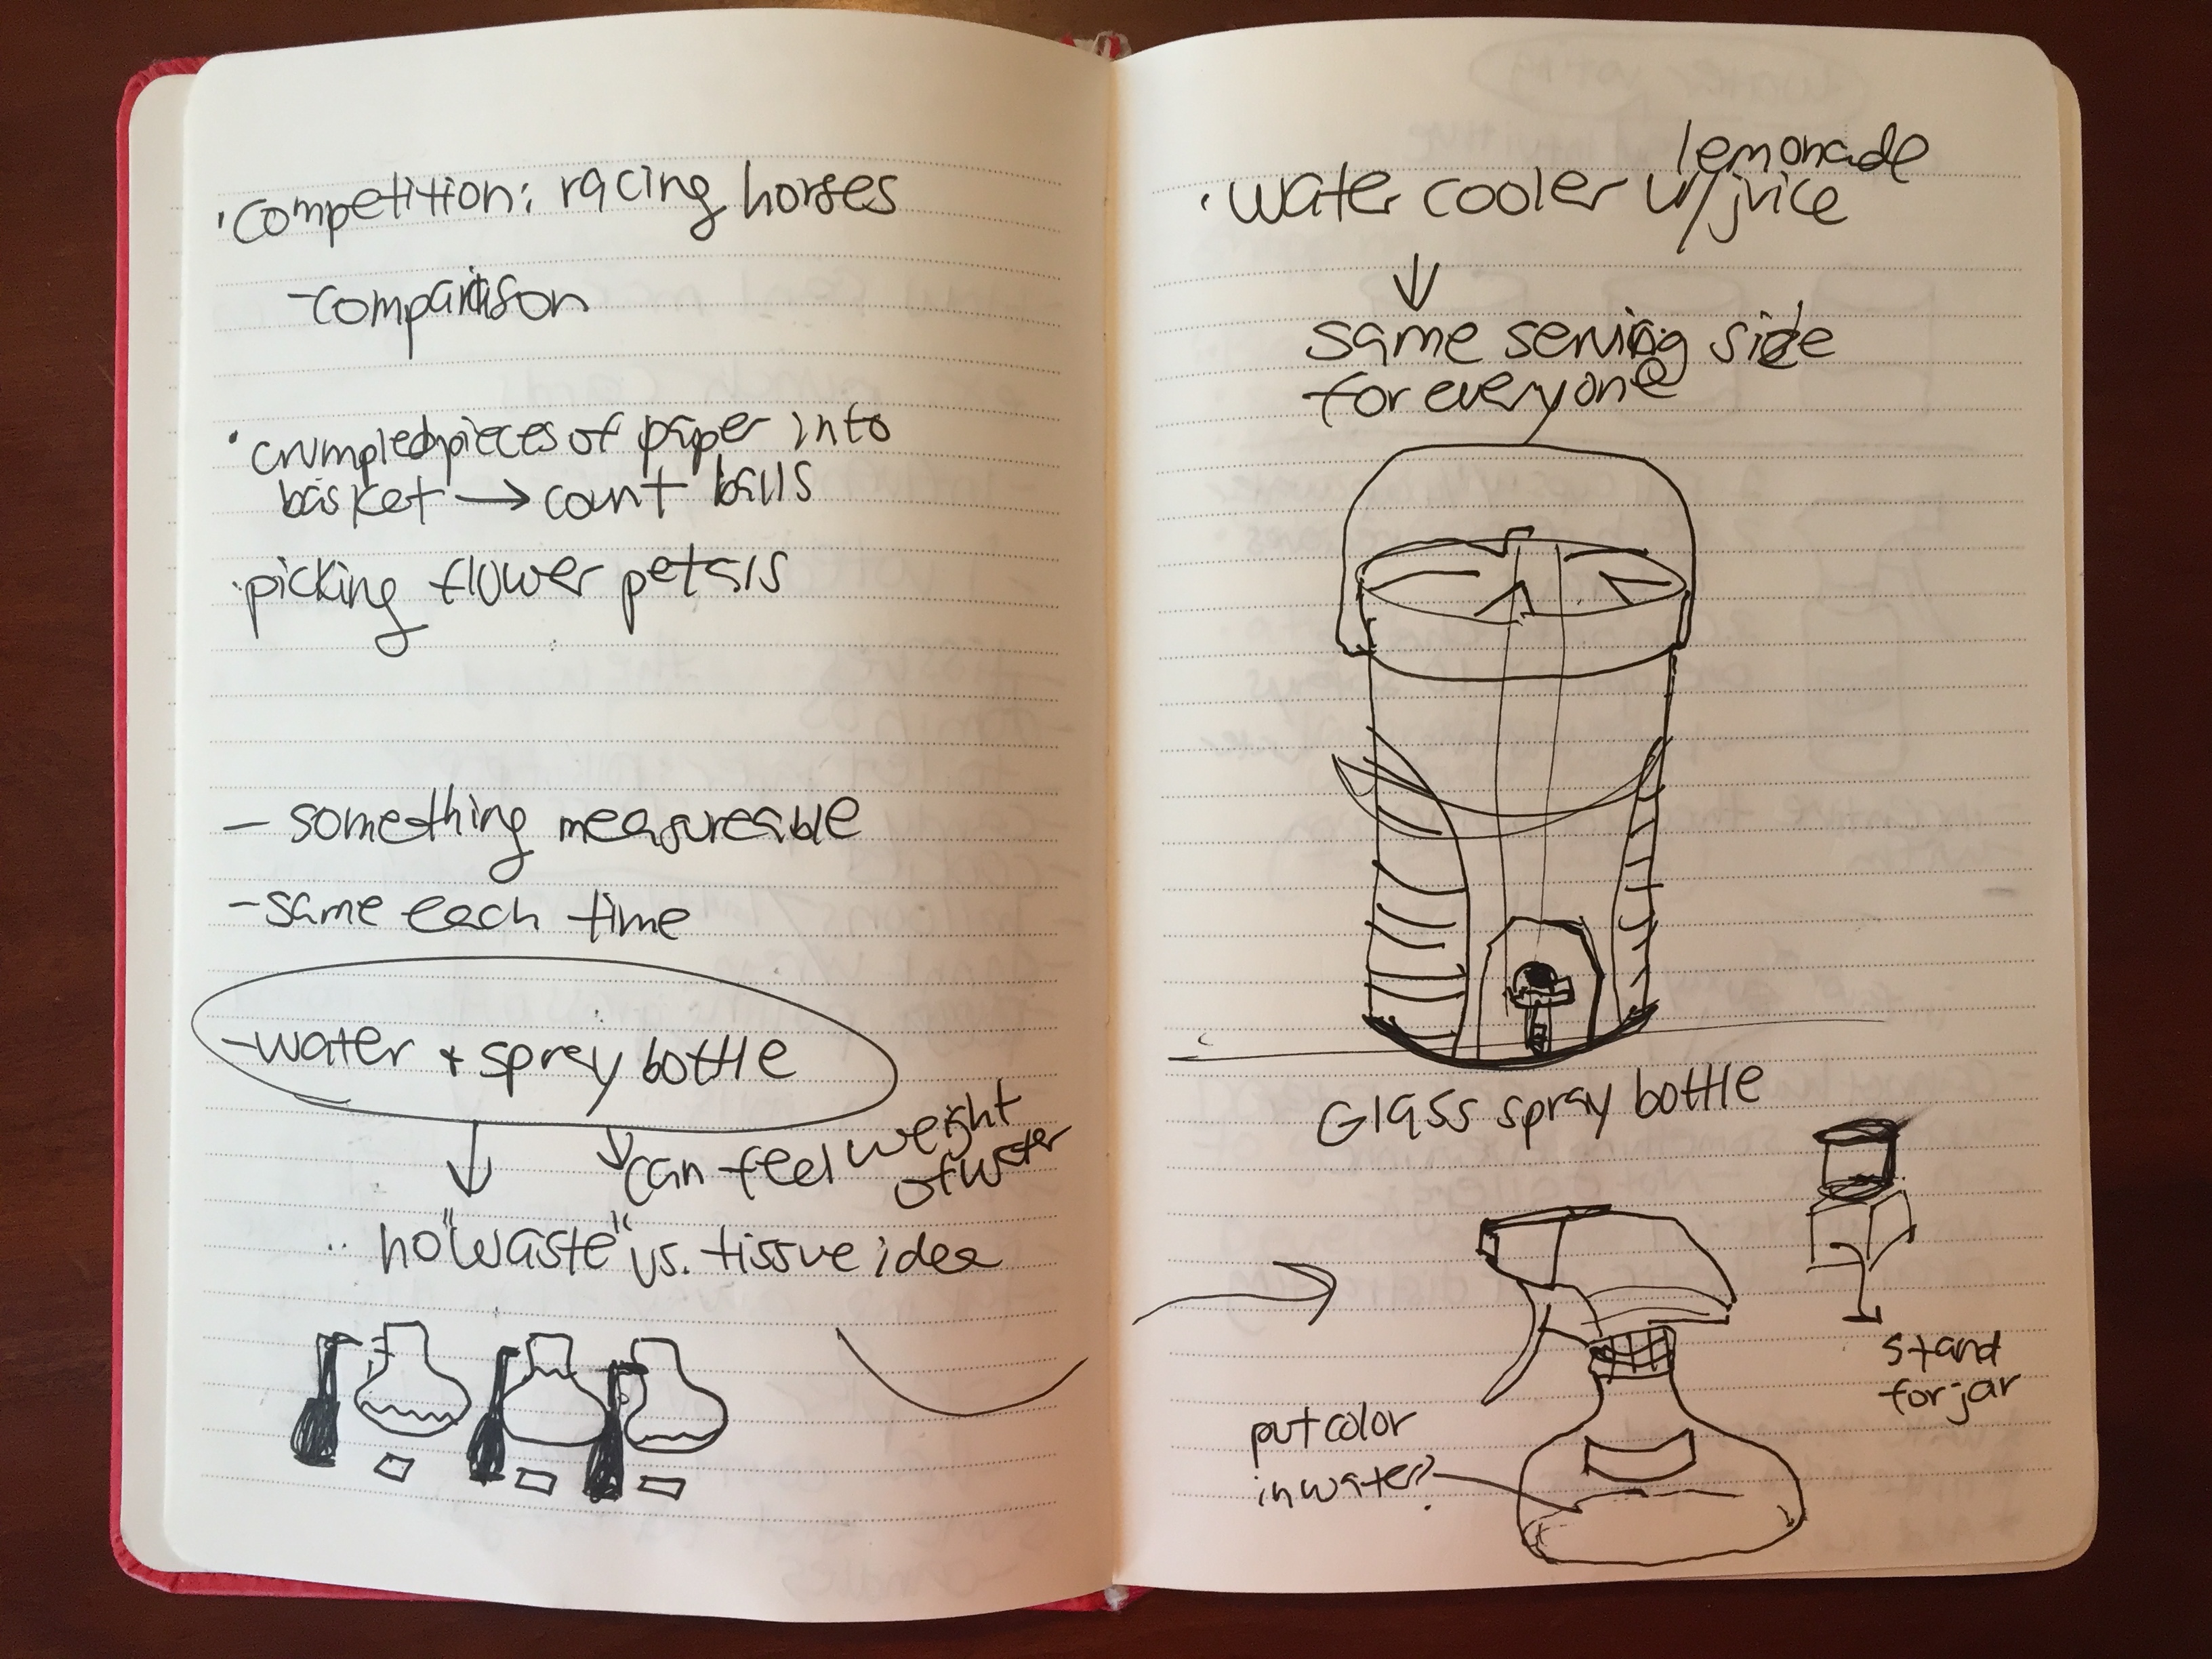 · Competition: racing horses
- Comparison
· crumpled pieces of paper into
basket → count balls
· picking flower petals
- something measureable
- same each time
- water + spray bottle
can feel weight
of water
no "waste" vs. tissue idea
lemonade
· water cooler w/juice
↓
same serving side
for everyone
Glass spray bottle
stand
for jar
put color
in water?